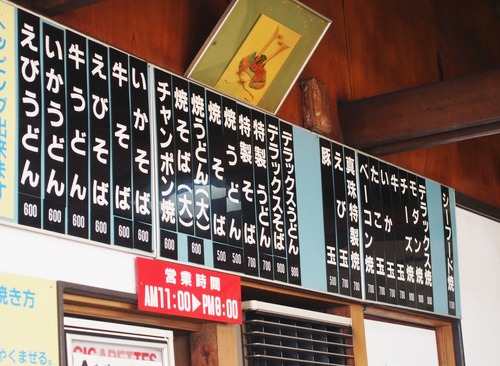 シーフード焼
デラックス焼
モダン焼
チーズ焼
牛玉
いか玉
たこ玉
ベーコン焼 700
真珠特製焼 700
えび玉 700
豚玉 500
デラックスうどん 900
デラックスそば 900
特製うどん 700
特製そば 700
焼うどん 500
焼そば 500
焼うどん(大) 600
焼そば(大)
チャンポン焼 600
いかそば 600
牛そば 600
えびそば 600
牛うどん 600
いかうどん 600
えびうどん 600
ッピング出来ます
営業時間
AM11:00▶PM8:00
焼き方
やくませる。
CIGARETTES